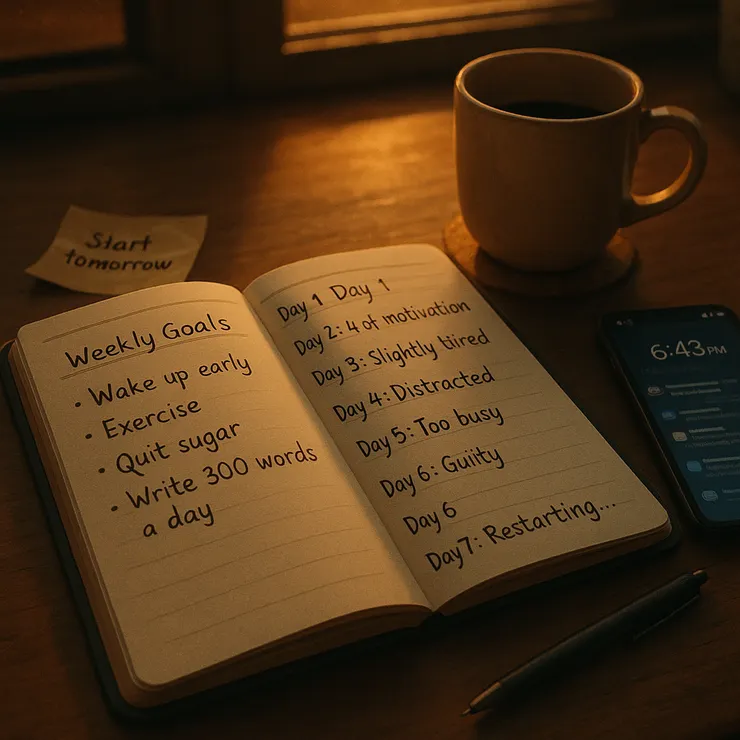 Start
tomorrow
Weekly Goals
• Wake up early
• Exercise
• Quit sugar
• Write 300 words
a day
Day 1 Day 1
Day 2: 4 of motivation
Day 3: Slightly tired
Day 4: Distracted
Day 5: Too busy
Day 6: Guiity
Day 6
Day7: Restarting...
6:43 PM